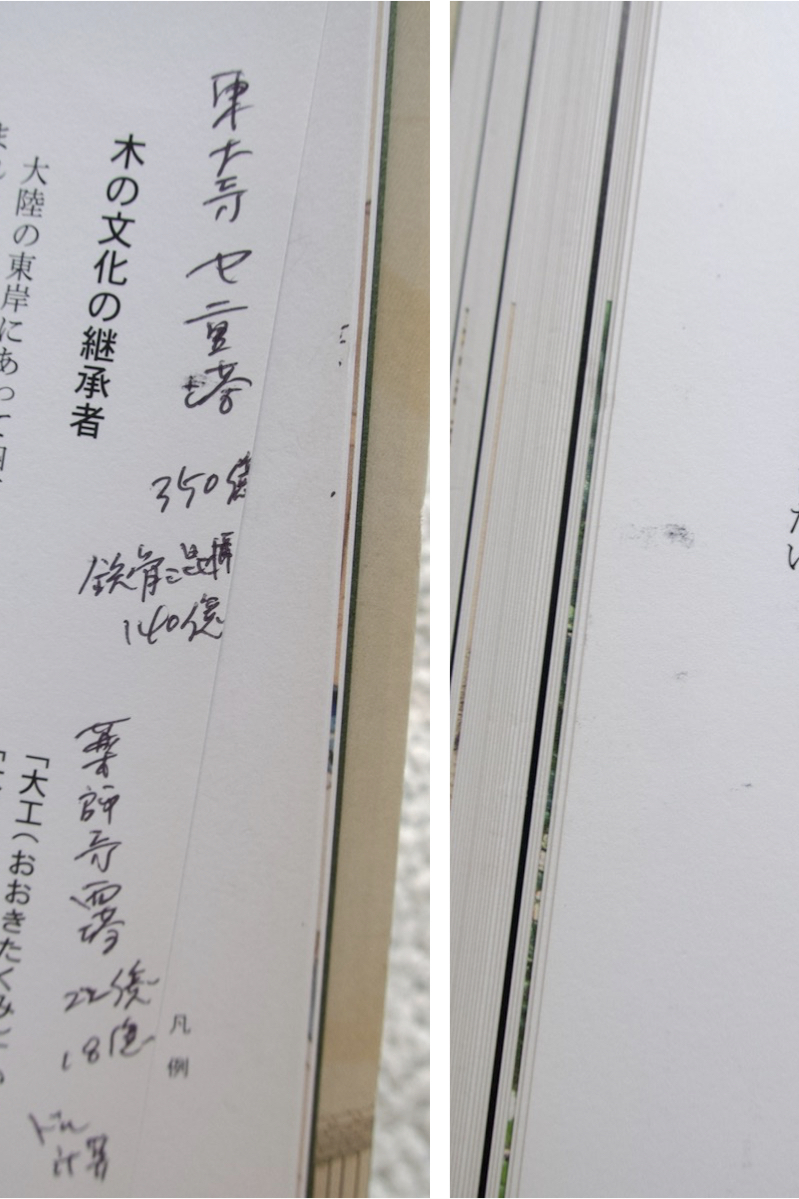 東大寺 七重塔
350億
鉄骨
140億
薬師寺西塔
22億
18億
ドル
計算
凡例
木の文化の継承者
大陸の東岸にあって
「大工(おおきたくみ